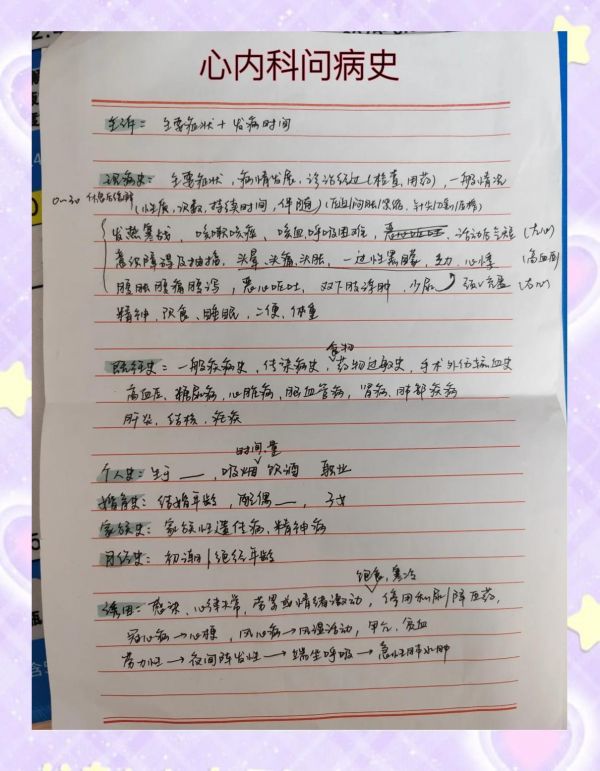 心内科问病史
主诉：主要症状+发病时间
现病史：主要症状，病情发展，诊治经过(检查，用药)，一般情况
(性质，次数，持续时间，伴随)
发热寒战，咳嗽咳痰，咳血，呼吸困难，活动后气短
意识障碍及抽搐，头晕、头痛、头胀，一过性黑朦，乏力，心悸(高血压)
腹胀腹痛腹泻，恶心呕吐，双下肢浮肿，少尿
精神、饮食、睡眠、二便、体重
食物
既往史：一般疾病史，传染病史，药物过敏史，手术外伤输血史
高血压、糖尿病，心脏病，脑血管病，肾病、肺部疾病
肝炎、结核、疟疾
时间、量
个人史：生于——，吸烟饮酒 职业
婚育史：结婚年龄，配偶——，子女
家族史：家族性遗传病、精神病
月经史：初潮/绝经年龄
饱食、寒冷
诱因：感染、心律失常，劳累或情绪激动，停用利尿/降压药，
冠心病→心梗，风心病→风湿活动，甲亢、贫血
劳力性→夜间阵发性→端坐呼吸→急性肺水肿